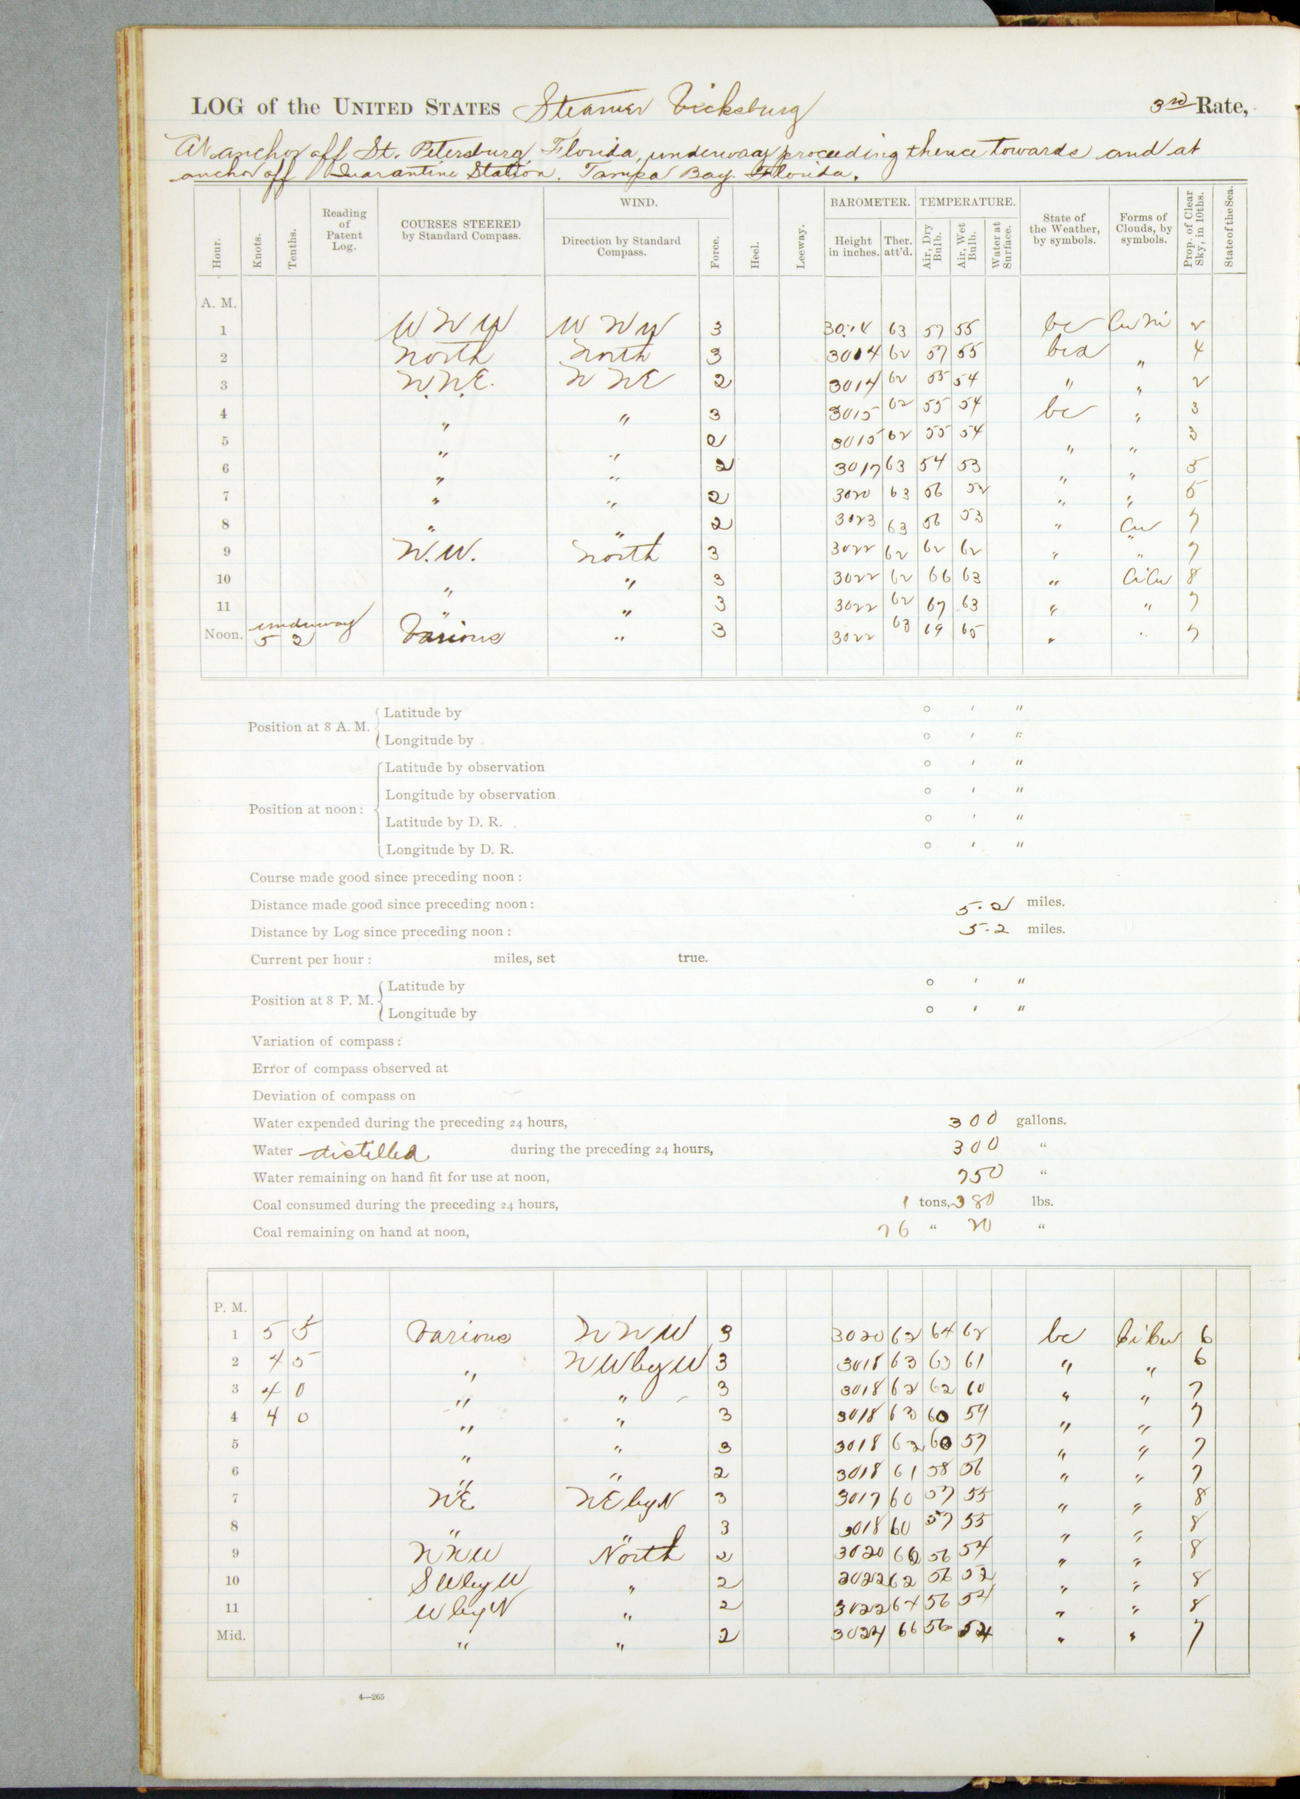 LOG of the UNITED STATES Steamer Vicksburg 3rd Rate,
At anchor off St. Petersburg, Florida, underway proceeding thence towards and at
anchor off Quarantine Station, Tampa Bay Florida.
Hour. Knots. Tenths. Reading of Patent Log. COURSES STEERED by Standard Compass. WIND. Direction by Standard Compass. Force. Heel. Leeway. BAROMETER. Height in inches. Ther. att'd. TEMPERATURE. Air, Dry Bulb. Air, Wet Bulb. Water at Surface. State of the Weather, by symbols. Forms of Clouds, by symbols. Prop. of Clear Sky, in 10ths. State of the Sea.
A. M.
1 WNW WNW 3 30.14 63 57 55 bc CuNi 2
2 North North 3 3014 62 57 55 bcd " 4
3 N.N.E. NNE 2 3014 62 55 54 " " 2
4 " " 3 3015 62 55 54 bc " 3
5 " " 2 3015 62 55 54 " " 3
6 " " 2 3017 63 54 53 " " 5
7 " " 2 3020 63 56 52 " " 5
8 " " 2 3023 63 56 53 " Cu 7
9 N.W. North 3 3022 62 62 62 " " 7
10 " " 3 3022 62 66 63 " CiCu 8
11 " " 3 3022 62 67 63 " " 7
underway
Noon. 5 2 Various " 3 3022 63 69 65 " " 7
Position at 8 A. M. Latitude by ° ′ ″
Longitude by ° ′ ″
Position at noon: Latitude by observation ° ′ ″
Longitude by observation ° ′ ″
Latitude by D. R. ° ′ ″
Longitude by D. R. ° ′ ″
Course made good since preceding noon:
Distance made good since preceding noon: 5.2 miles.
Distance by Log since preceding noon: 5.2 miles.
Current per hour: miles, set true.
Position at 8 P. M. Latitude by ° ′ ″
Longitude by ° ′ ″
Variation of compass:
Error of compass observed at
Deviation of compass on
Water expended during the preceding 24 hours, 300 gallons.
Water distilled during the preceding 24 hours, 300 "
Water remaining on hand fit for use at noon, 750 "
Coal consumed during the preceding 24 hours, 1 tons, 380 lbs.
Coal remaining on hand at noon, 76 " 20 "
P. M.
1 5 5 Various NNW 3 3020 62 64 62 bc CiCu 6
2 4 5 " NWbyW 3 3018 63 63 61 " " 6
3 4 0 " " 3 3018 62 62 60 " " 7
4 4 0 " " 3 3018 63 60 59 " " 7
5 " " 3 3018 62 60 57 " " 7
6 " " 2 3018 61 58 56 " " 7
7 NE NEbyN 3 3017 60 57 55 " " 8
8 " " 3 3018 60 57 55 " " 8
9 NNW North 2 3020 60 56 54 " " 8
10 SWbyW " 2 3022 62 56 52 " " 8
11 WbyN " 2 3022 64 56 54 " " 8
Mid. " " 2 3024 66 56 54 " " 7
4—265